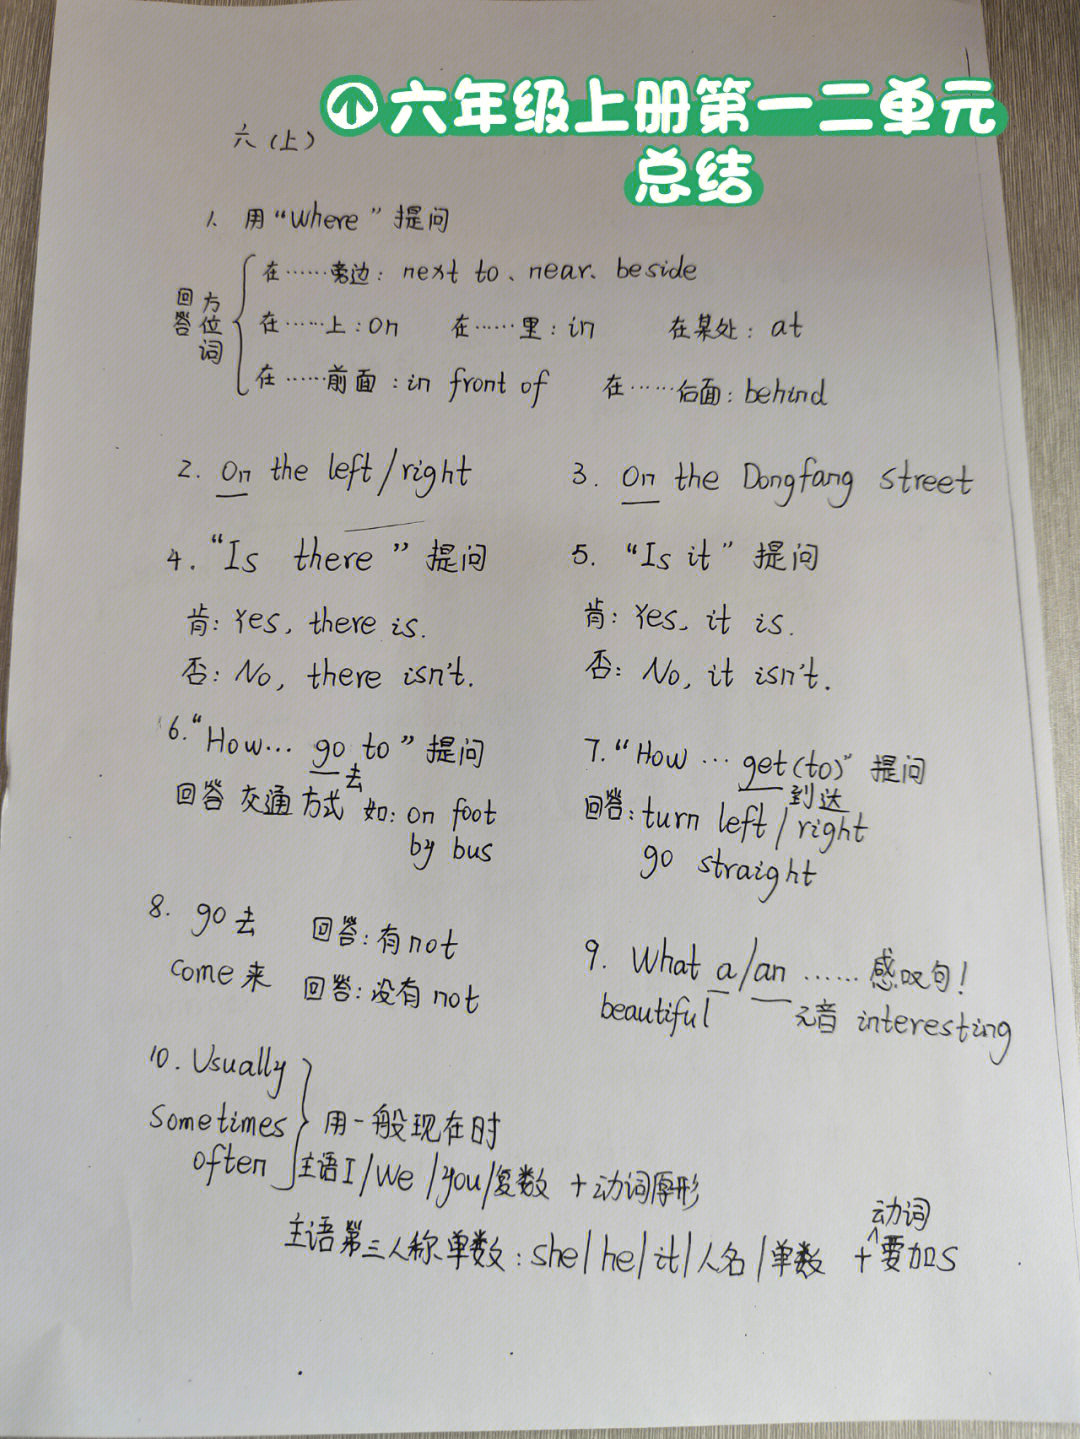 六年级上册第一二单元
总结
六(上)
1. 用“Where”提问
回答 方位词
在……旁边: next to、near、beside
在……上: on 在……里: in 在某处: at
在……前面: in front of 在……后面: behind
2. On the left/right
3. On the Dongfang street
4. “Is there”提问
肯: Yes, there is.
否: No, there isn't.
5. “Is it”提问
肯: Yes, it is.
否: No, it isn't.
6. “How… go to”提问
去
回答 交通方式 如: on foot
by bus
7. “How … get(to)”提问
到达
回答: turn left/right
go straight
8. go去 回答: 有not
come来 回答: 没有not
9. What a/an ……感叹句!
beautiful 元音 interesting
10. Usually
Sometimes 用一般现在时
often 主语I/We/you/复数 +动词原形
动词
主语第三人称单数: she/he/it/人名/单数 +要加s